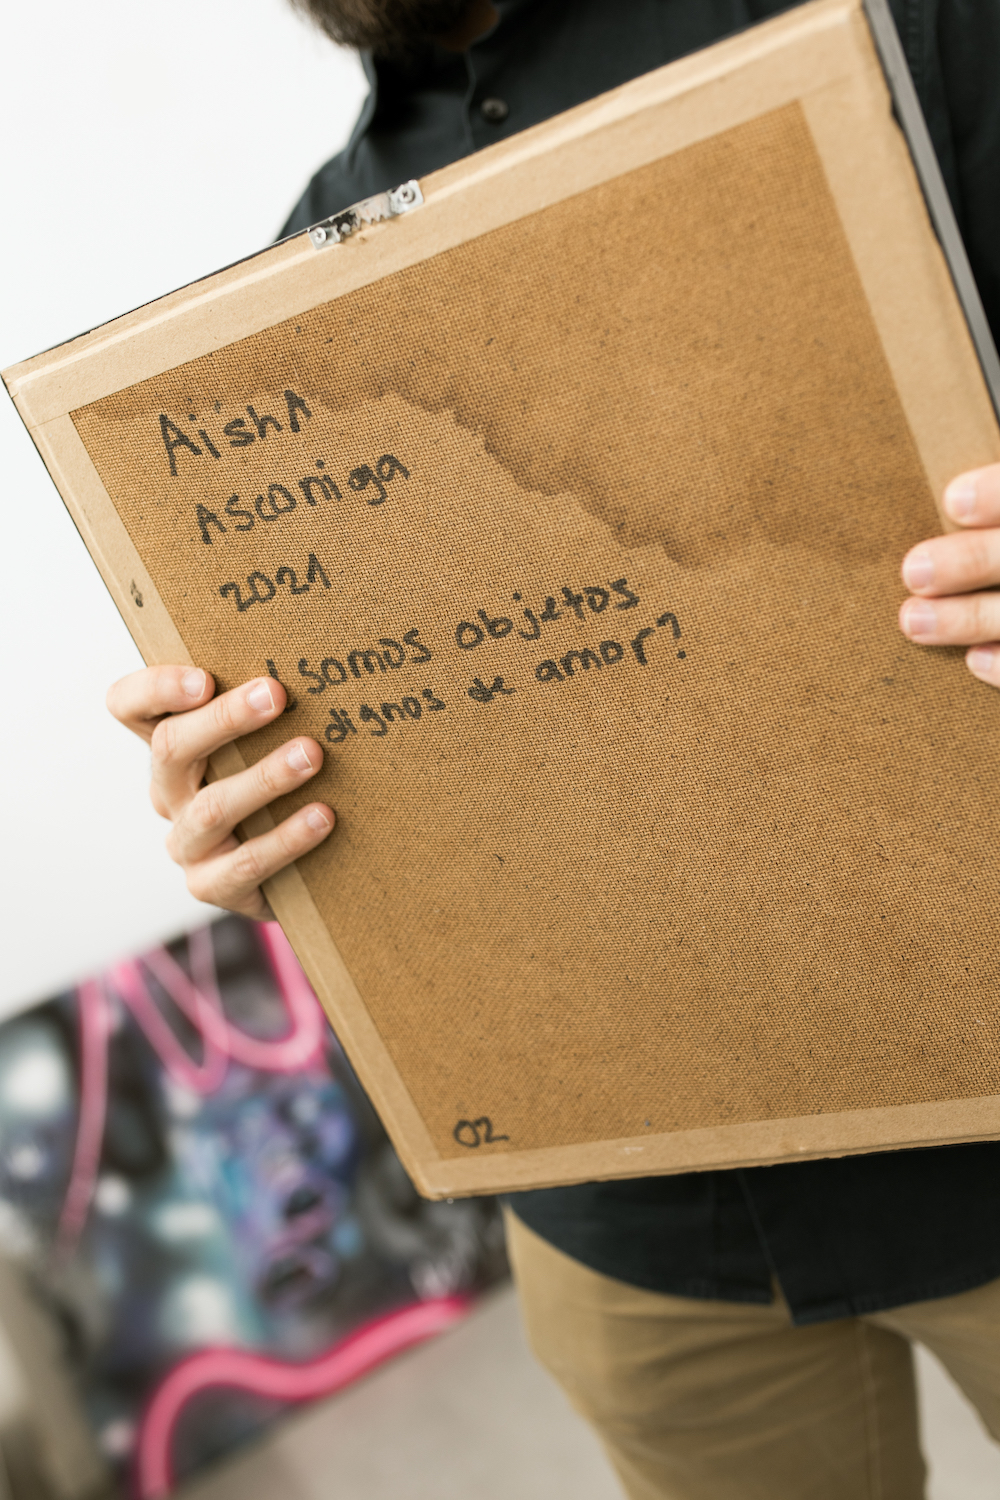 Aisha
Asconiga
2021
¿somos objetos
dignos de amor?
02